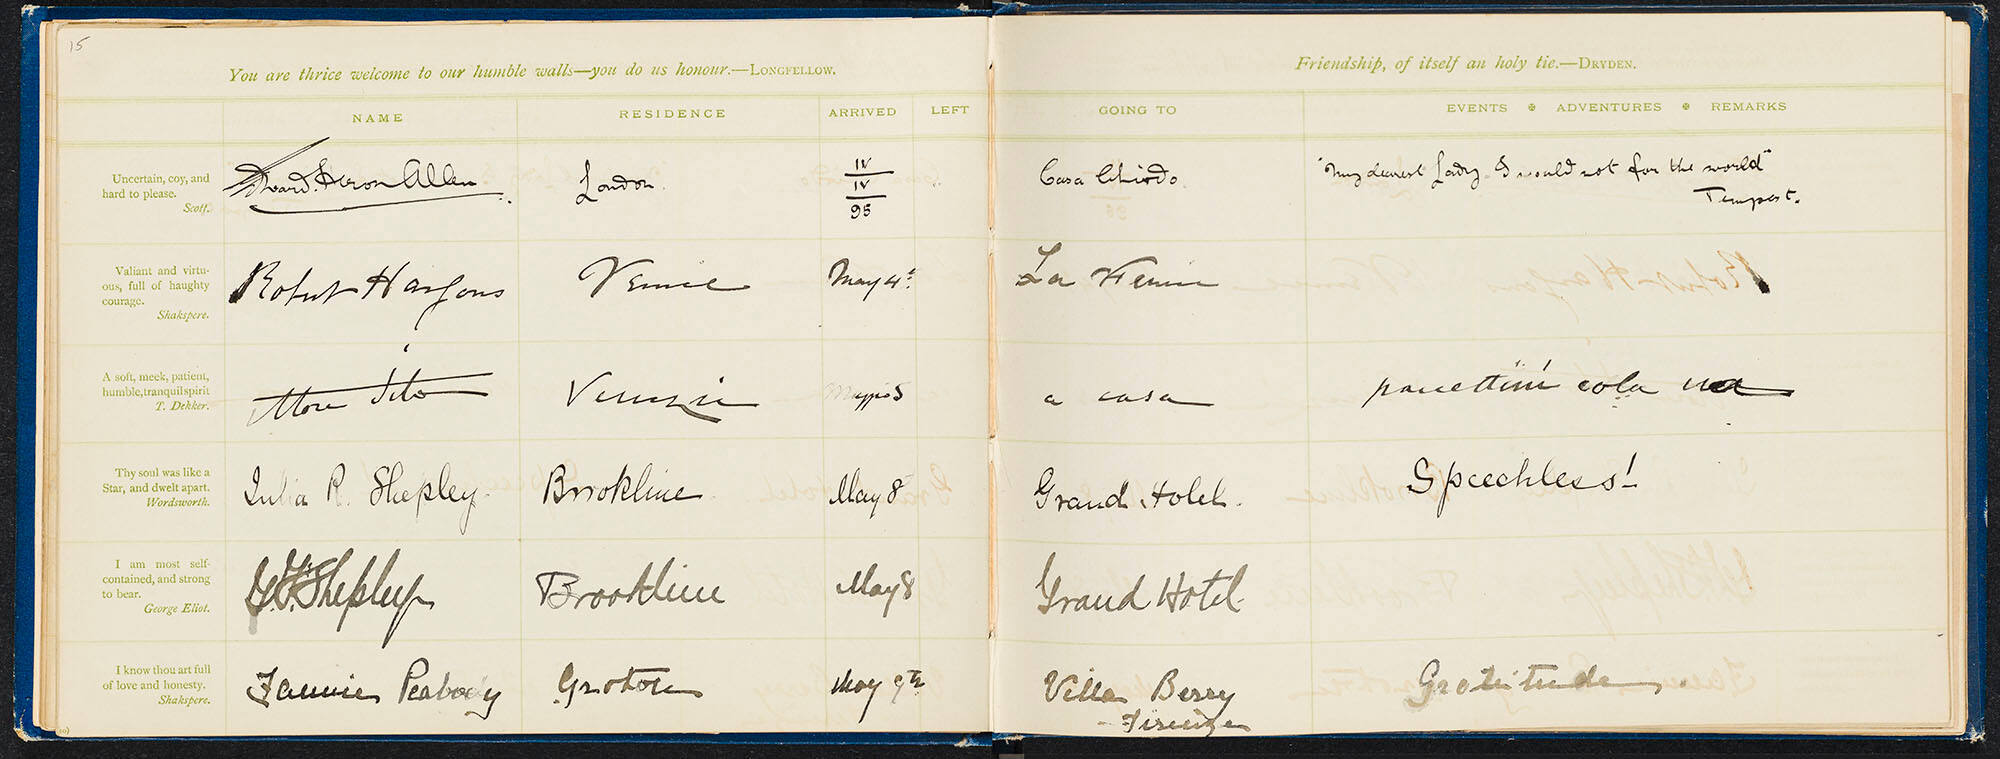 15
You are thrice welcome to our humble walls—you do us honour.—LONGFELLOW.
Friendship, of itself an holy tie.—DRYDEN.
NAME RESIDENCE ARRIVED LEFT GOING TO EVENTS ✠ ADVENTURES ✠ REMARKS
Uncertain, coy, and
hard to please.
Scott.
Edward. Heron Allen London. IV
IV
95
Casa
"My dearest Lady I would not for the world"
Tempest.
Valiant and virtu-
ous, full of haughty
courage.
Shakspere.
Robert Venice May 4th La
A soft, meek, patient,
humble, tranquil spirit
T. Dekker.
Ettore Tito Venezia Maggio 5 a casa cola
Thy soul was like a
Star, and dwelt apart.
Wordsworth.
Julia R. Shepley. Brookline May 8 Grand Hotel. Speechless!
I am most self-
contained, and strong
to bear.
George Eliot.
G.F. Shepley Brookline May 8 Grand Hotel.
I know thou art full
of love and honesty.
Shakspere.
Fannie Peabody Groton May 9th Villa Berry
- Firenze
Gratitude.